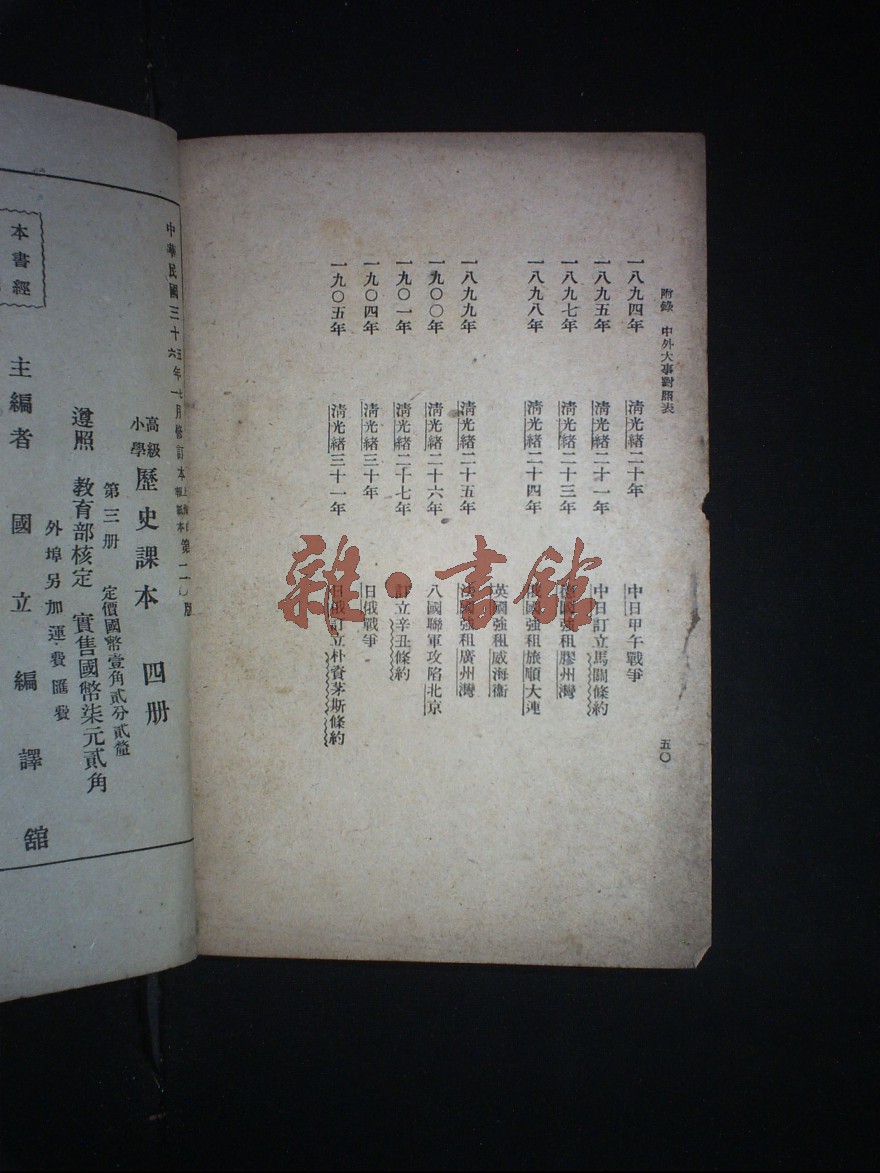 附錄 中外大事對照表
一八九四年 清光緒二十年 中日甲午戰爭
一八九五年 清光緒二十一年 中日訂立馬關條約
一八九七年 清光緒二十三年 德國強租膠州灣
一八九八年 清光緒二十四年 俄國強租旅順大連
英國強租威海衛
一八九九年 清光緒二十五年 法國強租廣州灣
一九〇〇年 清光緒二十六年 八國聯軍攻陷北京
一九〇一年 清光緒二十七年 訂立辛丑條約
一九〇四年 清光緒三十年 日俄戰爭
一九〇五年 清光緒三十一年 日俄訂立朴資茅斯條約
五〇
雜·書館
中華民國三十五年七月修訂本
六年一
高級小學 歷史課本 四册
第三册 定價國幣壹角貳分貳釐
遵照 教育部核定 實售國幣柒元貳角
外埠另加運費匯費
主編者 國立編譯館
本書經